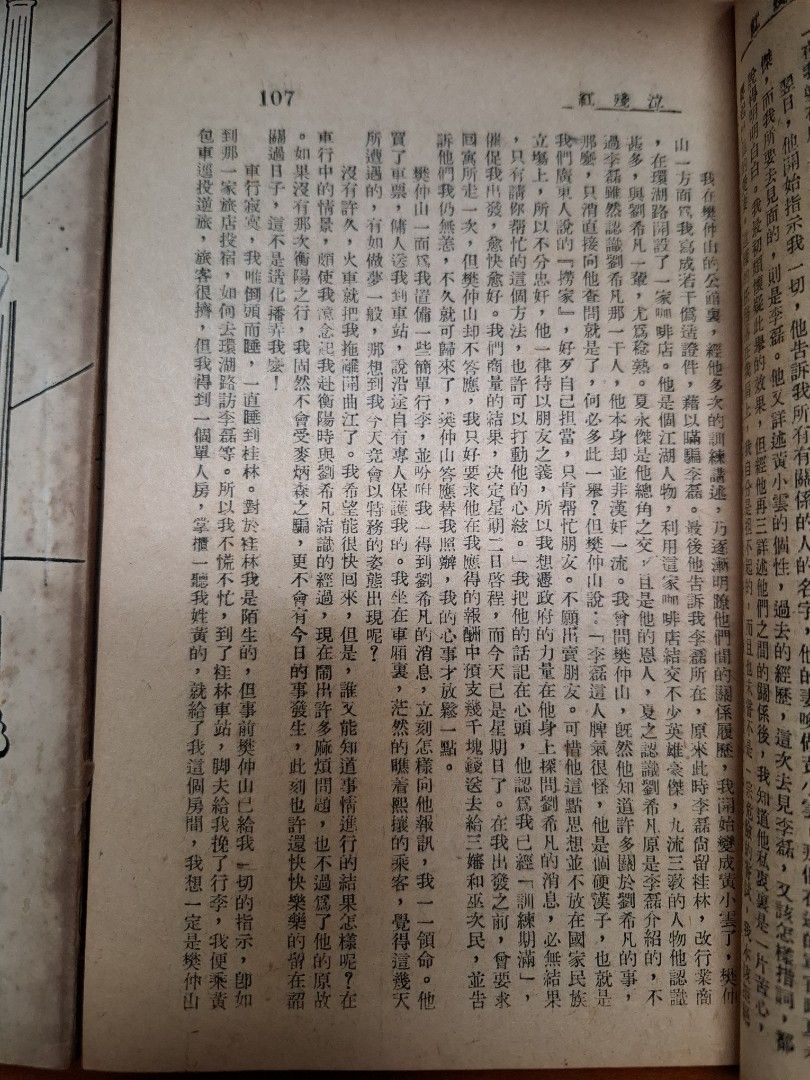 翌日，他開始指示我一切，他告訴我所有有關係的人的名字，他的妻
傑，而我所要去見面的，則是李磊。他又詳述黃小雲的個性，過去的經歷，這次去見李磊，又該怎樣措詞，都
我最初頗懷疑此舉的效果，但經他再三詳述他們之間的關係後，我知道他私衷裏是一片苦心，
泣殘紅
107
我在樊仲山的公館裏，經他多次的訓練講述，乃逐漸明瞭他們間的關係履歷，我開始變成黃小雲了，樊仲
山一方面爲我寫成若干僞造證件，藉以瞞騙李磊。最後他告訴我李磊所在，原來此時李磊尙留桂林，改行業商
，在環湖路開設了一家咖啡店。他是個江湖人物，利用這家咖啡店結交不少英雄豪傑，九流三敎的人物他認識
甚多，與劉希凡一輩，尤爲稔熟。夏永傑是他總角之交，且是他的恩人，夏之認識劉希凡原是李磊介紹的，不
過李磊雖然認識劉希凡那一干人，他本身却並非漢奸一流。我曾問樊仲山，旣然他知道許多關於劉希凡的事，
那麼，只消直接向他查問就是了，何必多此一舉？但樊仲山說：「李磊這人脾氣很怪，他是個硬漢子，也就是
我們廣東人說的『撈家』，好歹自己担當，只肯帮忙朋友。不顧出賣朋友。可惜他這點思想並不放在國家民族
立場上，所以不分忠奸，他一律待以朋友之義，所以我想憑政府的力量在他身上探問劉希凡的消息，必無結果
，只有請你帮忙的這個方法，也許可以打動他的心絃。」我把他的話記在心頭，他認爲我已經「訓練期滿」，
催促我出發，愈快愈好。我們商量的結果，决定星期二日啓程，而今天已是星期日了。在我出發之前，曾要求
囘寓所走一次，但樊仲山却不答應，我只好要求他在我應得的報酬中預支幾千塊錢送去給三嬸和巫次民，並告
訴他們我仍無恙，不久就可歸來了，樊仲山答應替我照辦，我的心事才放鬆一點。
樊仲山一面爲我置備一些簡單行李，並吩咐我一得到劉希凡的消息，立刻怎樣向他報訊，我一一領命。他
買了車票，傭人送我到車站，說沿途自有專人保護我的。我坐在車廂裏，茫然的瞧着熙攘的乘客，覺得這幾天
所遭遇的，有如做夢一般，那想到我今天竟會以特務的姿態出現呢？
沒有許久，火車就把我拖離開曲江了。我希望能很快回來，但是，誰又能知道事情進行的結果怎樣呢？在
車行中的情景，頗使我憶念起我赴衡陽時與劉希凡結識的經過，現在鬧出許多麻煩問題，也不過爲了他的原故
。如果沒有那次衡陽之行，我固然不會受麥炳森之騙，更不會有今日的事發生，此刻也許還快快樂樂的留在韶
關過日子，這不是造化播弄我麼！
車行寂寞，我唯倒頭而睡，一直睡到桂林。對於桂林我是陌生的，但事前樊仲山已給我一切的指示，卽如
到那一家旅店投宿，如何去環湖路訪李磊等。所以我不慌不忙，到了桂林車站，脚夫給我挽了行李，我便乘黃
包車逕投逆旅，旅客很擠，但我得到一個單人房，掌櫃一聽我姓黃的，就給了我這個房間，我想一定是樊仲山